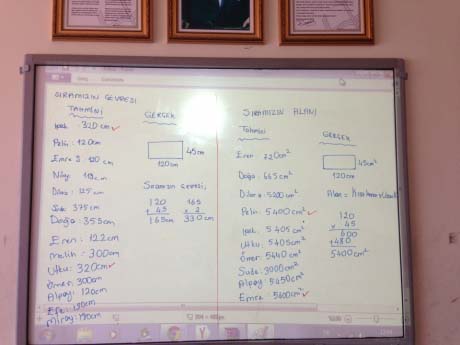 SIRAMIZIN ÇEVRESİ
TAHMİNİ
İpek: 320cm ✓
Pelin: 120cm
Emre S: 120 cm
Nilay: 119cm
Dilara: 125cm
Sude: 375cm
Doğa: 355cm
Eren: 122cm
Melih: 300cm
Utku: 320cm ✓
Ömer: 300cm
Alpay: 120cm
Efe: 190cm
Miray: 190cm
GERÇEK
45cm
120cm
Sıramızın çevresi;
120 165
+ 45 x 2
165cm 330cm
SIRAMIZIN ALANI
Tahmini
Eren: 720cm²
Doğa: 465cm²
Dilara: 5200cm²
Pelin: 5400cm² ✓
İpek: 5405cm²
Utku: 5405cm²
Ömer: 5440cm²
Sude: 3000cm²
Alpay: 5450cm²
Emre: 5600cm²
GERÇEK
45cm²
120cm
Alan = Kısakenar x Uzun k
120
x 45
600
+480
5400cm²